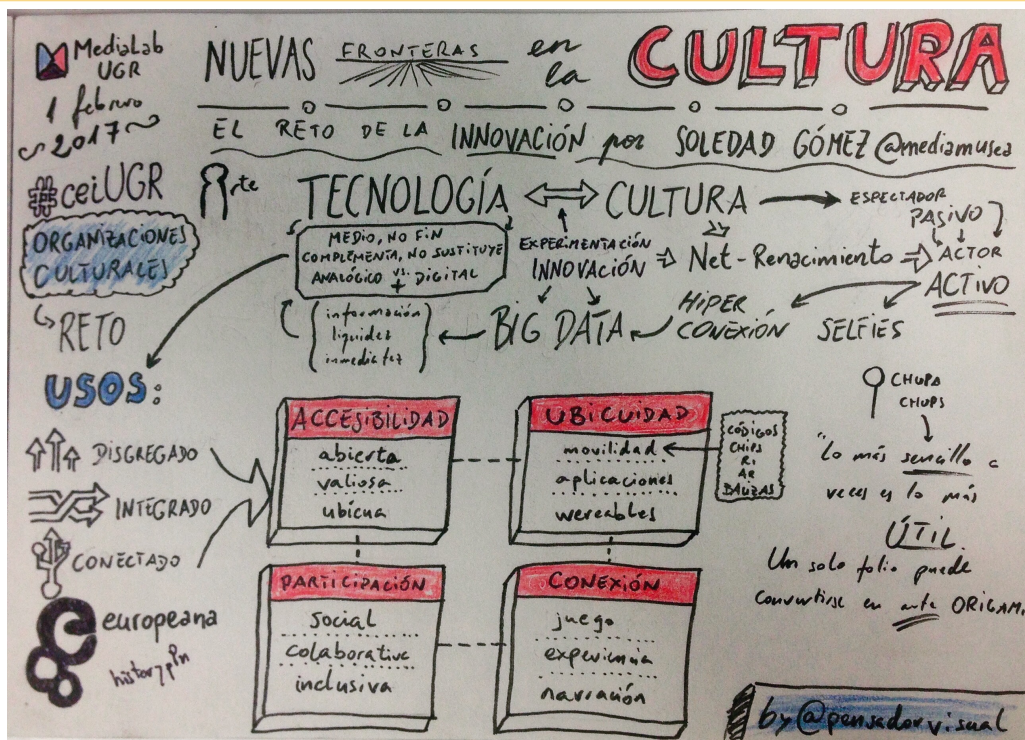 MediaLab
UGR
1 febrero
2017
#ceiUGR
ORGANIZACIONES
CULTURALES
RETO
NUEVAS FRONTERAS en
la CULTURA
EL RETO DE LA INNOVACIÓN por SOLEDAD GÓMEZ @mediamusea
Arte TECNOLOGÍA CULTURA
ESPECTADOR
PASIVO
ACTOR
ACTIVO
MEDIO, NO FIN
COMPLEMENTA, NO SUSTITUYE
ANALÓGICO vs. + DIGITAL
EXPERIMENTACIÓN
INNOVACIÓN
Net-Renacimiento
HIPER
CONEXIÓN
SELFIES
BIG DATA
información
liquidez
inmediatez
USOS:
DISGREGADO
INTEGRADO
CONECTADO
europeana
historypin
ACCESIBILIDAD
abierta
valiosa
ubicua
UBICUIDAD
movilidad
aplicaciones
wereables
CÓDIGOS
CHIPS
RI
AR
BALIZAS
PARTICIPACIÓN
social
colaborativa
inclusiva
CONEXIÓN
juego
experiencia
narración
CHUPA
CHUPS
"Lo más sencillo a
veces es lo más
ÚTIL.
Un solo folio puede
convertirse en arte ORIGAMI
by @pensadorvisual